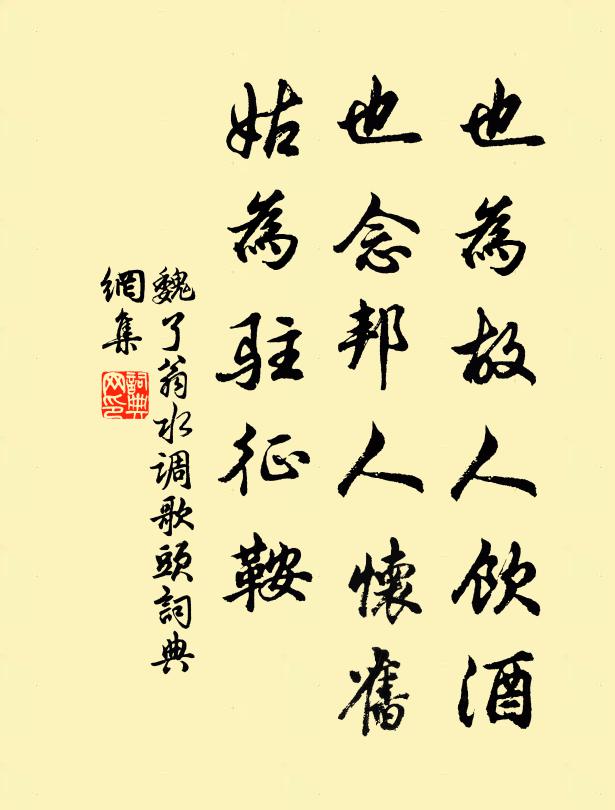 也為故人飲酒
也念邦人懷舊
姑為駐征鞍
魏了翁水调歌頭詞典
網集
詞典
网印